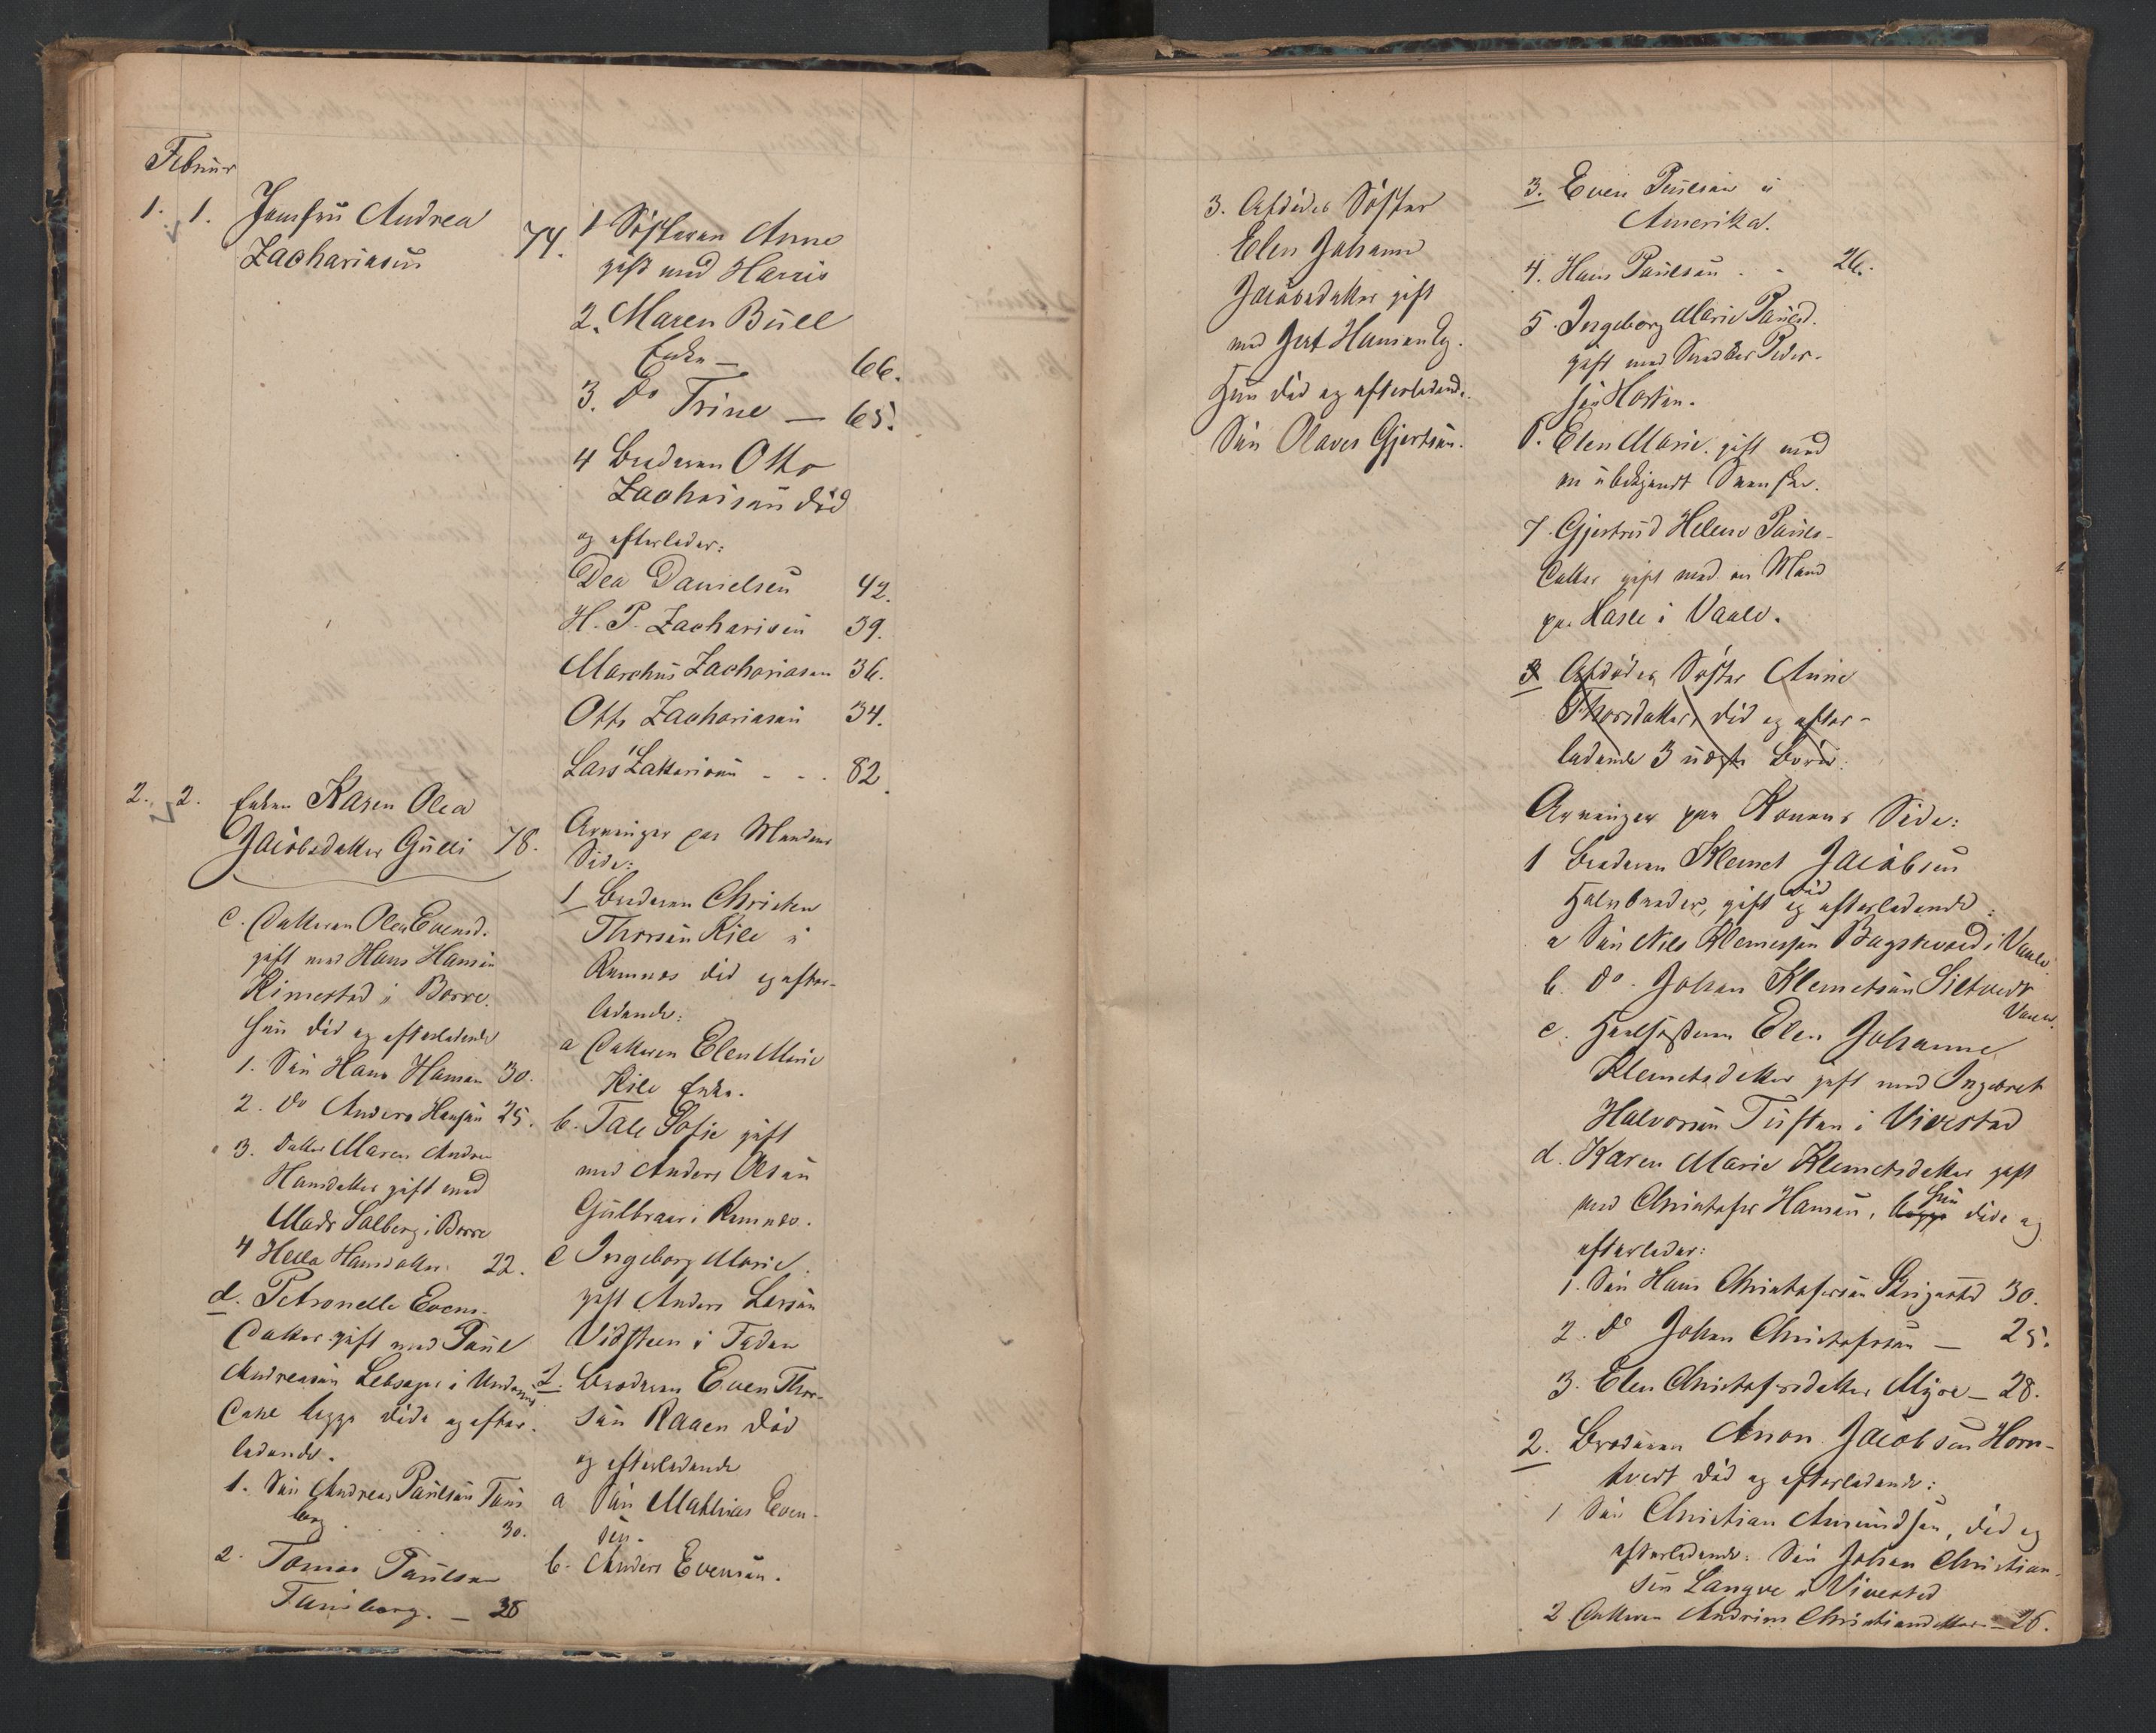 Febuar
1. 1. Jomfru Andrea
Zachariasen 74.
1 Søsteren Anne
gift med Harris
2. Maren Bull
Enke — 66.
3. Do Trine — 65.
4 Broderen Otto
Zachrisen død
og efterlader:
Dea Danielsen 42.
H. P. Zacharisen 39.
Marchus Zachariasen 36.
Otto Zachariasen 34.
Lars Zakkarisen - - . 82.
2. 2. Enken Karen Olea
Jacobsdatter Gulli 78.
c. Datteren Olea Evensd.
gift med Hans Hansen
Kimestad i Borre.
hun død og efterladende
1. Søn Hans Hansen 30.
2. Do Anders Hansen 25.
3. Datter Maren Andrea
Hansdatter gift med
Mads Solberg i Borre
4 Hella Hansdatter. 22.
d. Petronelle Evens-
Datter gift med Paul
Andreasen Lebsage i Undersrud
Døtre begge døde og efter-
ladende.
1. Søn Andreas Paulsen Tuns
berg . . . 30.
2. Tomas Paulsen
Tunsberg. — 28
Arvinger paa Mandens
Side:
1 Broderen Christen
Thorsen Kile i
Ramnes død og efter-
ladende:
a Datteren Elen Marie
Kile Enke.
b. Tale Sofie gift
med Anders Olsen
Gulbraar i Ramnes.
c Ingeborg Marie
gift Anders Larsen
Vidsteen i Foden
2. Broderen Even Thor-
sen Raaen død
og efterladende
a Søn Mathias Even-
sen.
b. Anders Evensen.
3. Afdødes Søster
Elen Johanne
Jacobsdatter gift
med Gert Hansen Eg.
Hun død og efterladende.
Søn Olaves Gjertsen.
3. Even Paulsen i
Amerika.
4. Hans Paulsen . - 26.
5. Ingeborg Marie Paulsd.
gift med Snedker Peder-
sen Horten.
6. Elen Marie. gift med
en ubekjendt Svenske.
7. Gjertrud Helene Pauls-
Datter gift med en Mand
paa Hasle i Vaale.
3 Afdødes Søster Anne
Thorsdatter, død og efter-
ladende 3 udøgte Børn:
Arvinger paa Konens Side:
1 Broderen Klemet Jacobsen
Halvbroder, gift død og efterladende:
a Søn Nils Klemetsen Bagstevold i Vaale
b. Do. Johan Klemetsen Siltvedt
Vaale.
c. Halvsøsteren Elen Johanne
Klemetsdatter gift med Ingebret
Halvorsen Tuften i Vivestad
d. Karen Marie Klemetsdatter gift
med Christofer Hansen, begge hun døde og
efterlader:
1. Søn Hans Christofersen Skrigestad 30.
2. Do Johan Christofersen — 25.
3. Elen Christofersdatter Myre — 28.
2. Broderen Amon Jacobsen Horn-
tvedt død og efterladende:
1 Søn Christian Amundsen, død og
efterladende: Søn Johan Christian-
sen Langve i Vivestad
2 Datteren Andrine Christiansdatter — 26.